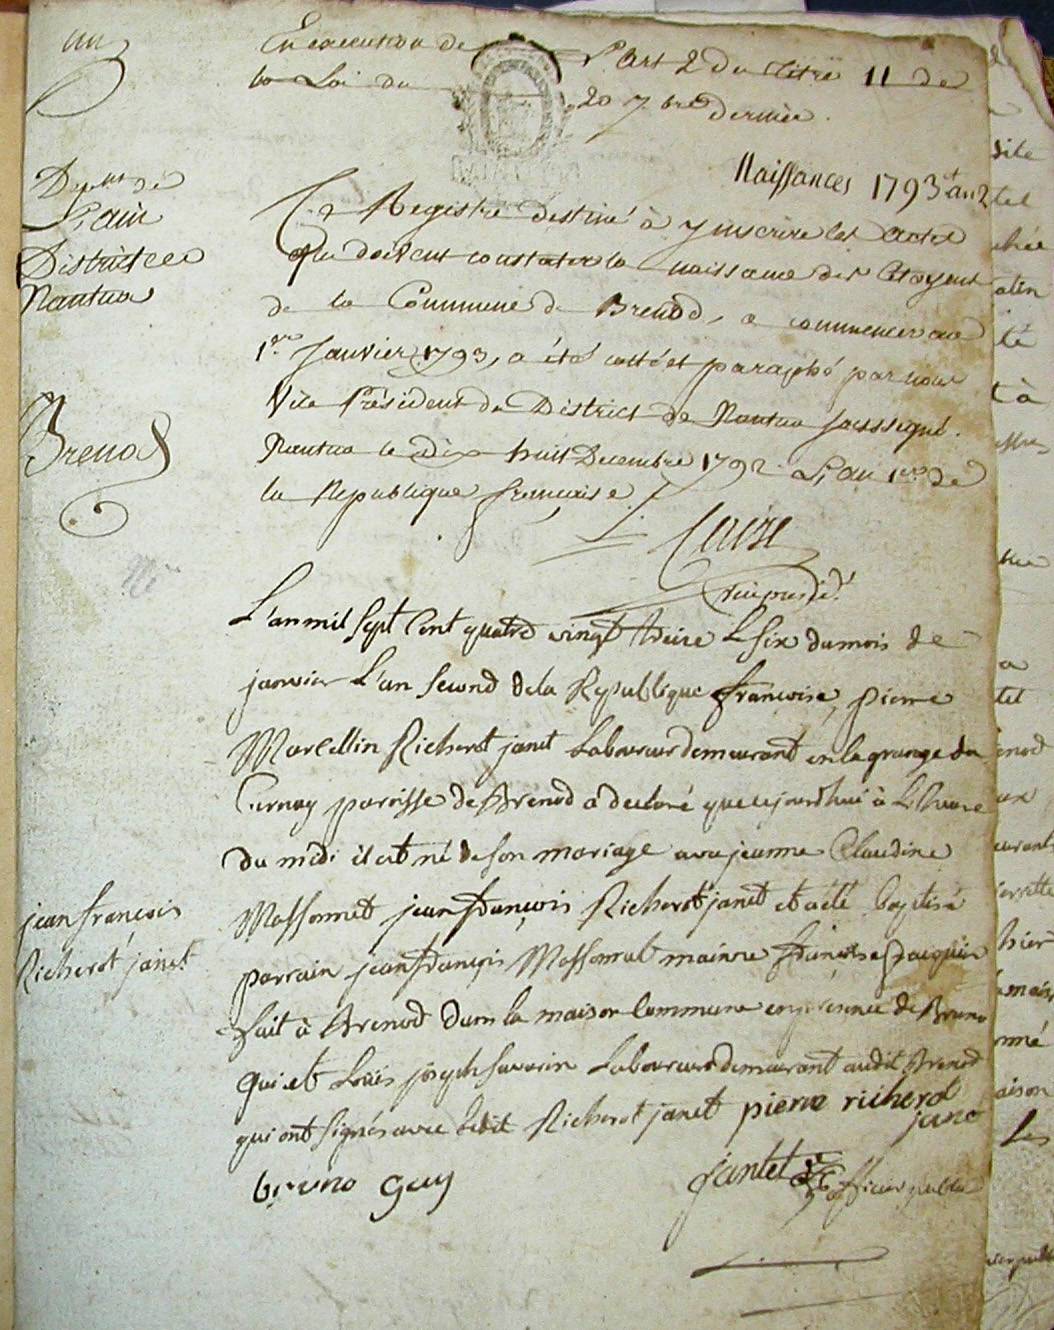 un
En execution de l'Art 2 du titre 11 de
la Loi du 20 7bre dernier.
Naissances 1793 et an 2
Depmt de
L'ain
District de
Nantua
Brenod
Ce Registre destiné à y inscrire les actes
qui doivent constater la naissance des Citoyens
de la Commune de Brenod, a commencer au
1er Janvier 1793, a été cotté et paraphé par nous
Vice Président du District de Nantua soussigné.
Nantua le dix huit Decembre 1792 L'an 1er de
la Republique françoise.
vice président
L'an mil sept Cent quatre vingt treize Le six du mois de
janvier L'an second de la Republique françoise, pierre
Marcellin Richerot janet Laboureur demeurant en la grange du
Cernay paroisse de Brenod a declaré que cejourd'hui à L'heure
du midi il est né de son mariage avec jeanne Claudine
Massonnet jean françois Richerot janet et a été baptisé
parrain jean françois Massonnet mairene françoise jacquin
fait à Brenod dans la maison Commune en presence de Bruno
Gui et Louis joseph savarin Laboureurs demeurant audit Brenod
qui ont signés avec ledit Richerot janet pierre richerot
janet
bruno guy
jantet officier public
jean françois
Richerot janet